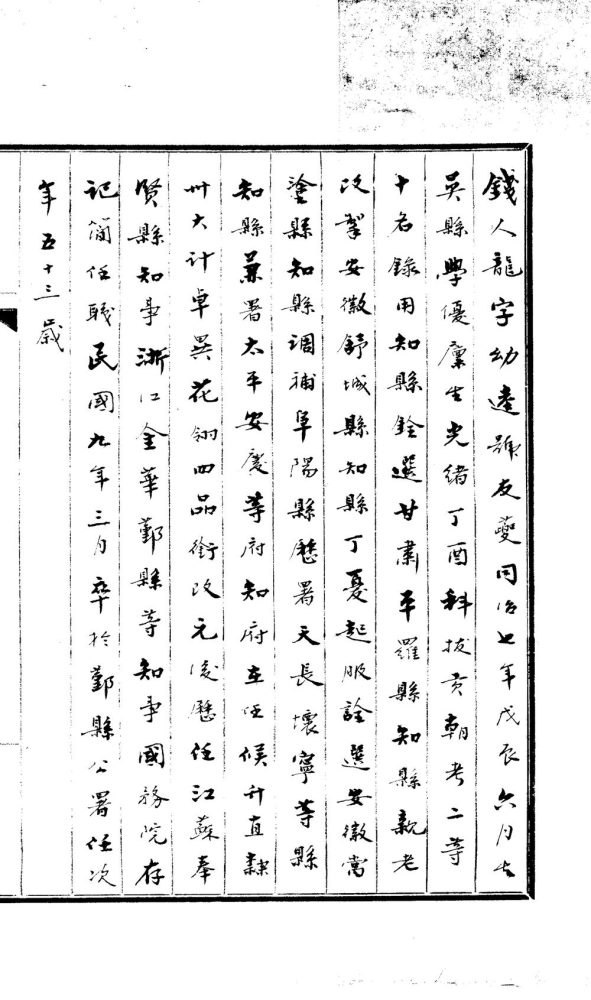 錢人龍字幼逵號友夔同治七年戊辰六月生
吳縣學優廩生光緒丁酉科拔貢朝考二等
十名錄用知縣銓選甘肅平羅縣知縣親老
改掣安徽舒城縣知縣丁憂起服詮選安徽當
塗縣知縣調補阜陽縣歷署天長壞寧等縣
知縣兼署太平安慶等府知府在任候升直隸
州大计卓異花翎四品銜改元後歷任江蘇奉
賢縣知事浙江金華鄞縣等知事國務院存
記簡任職民國九年三月卒於鄞縣公署任次
年五十三歲